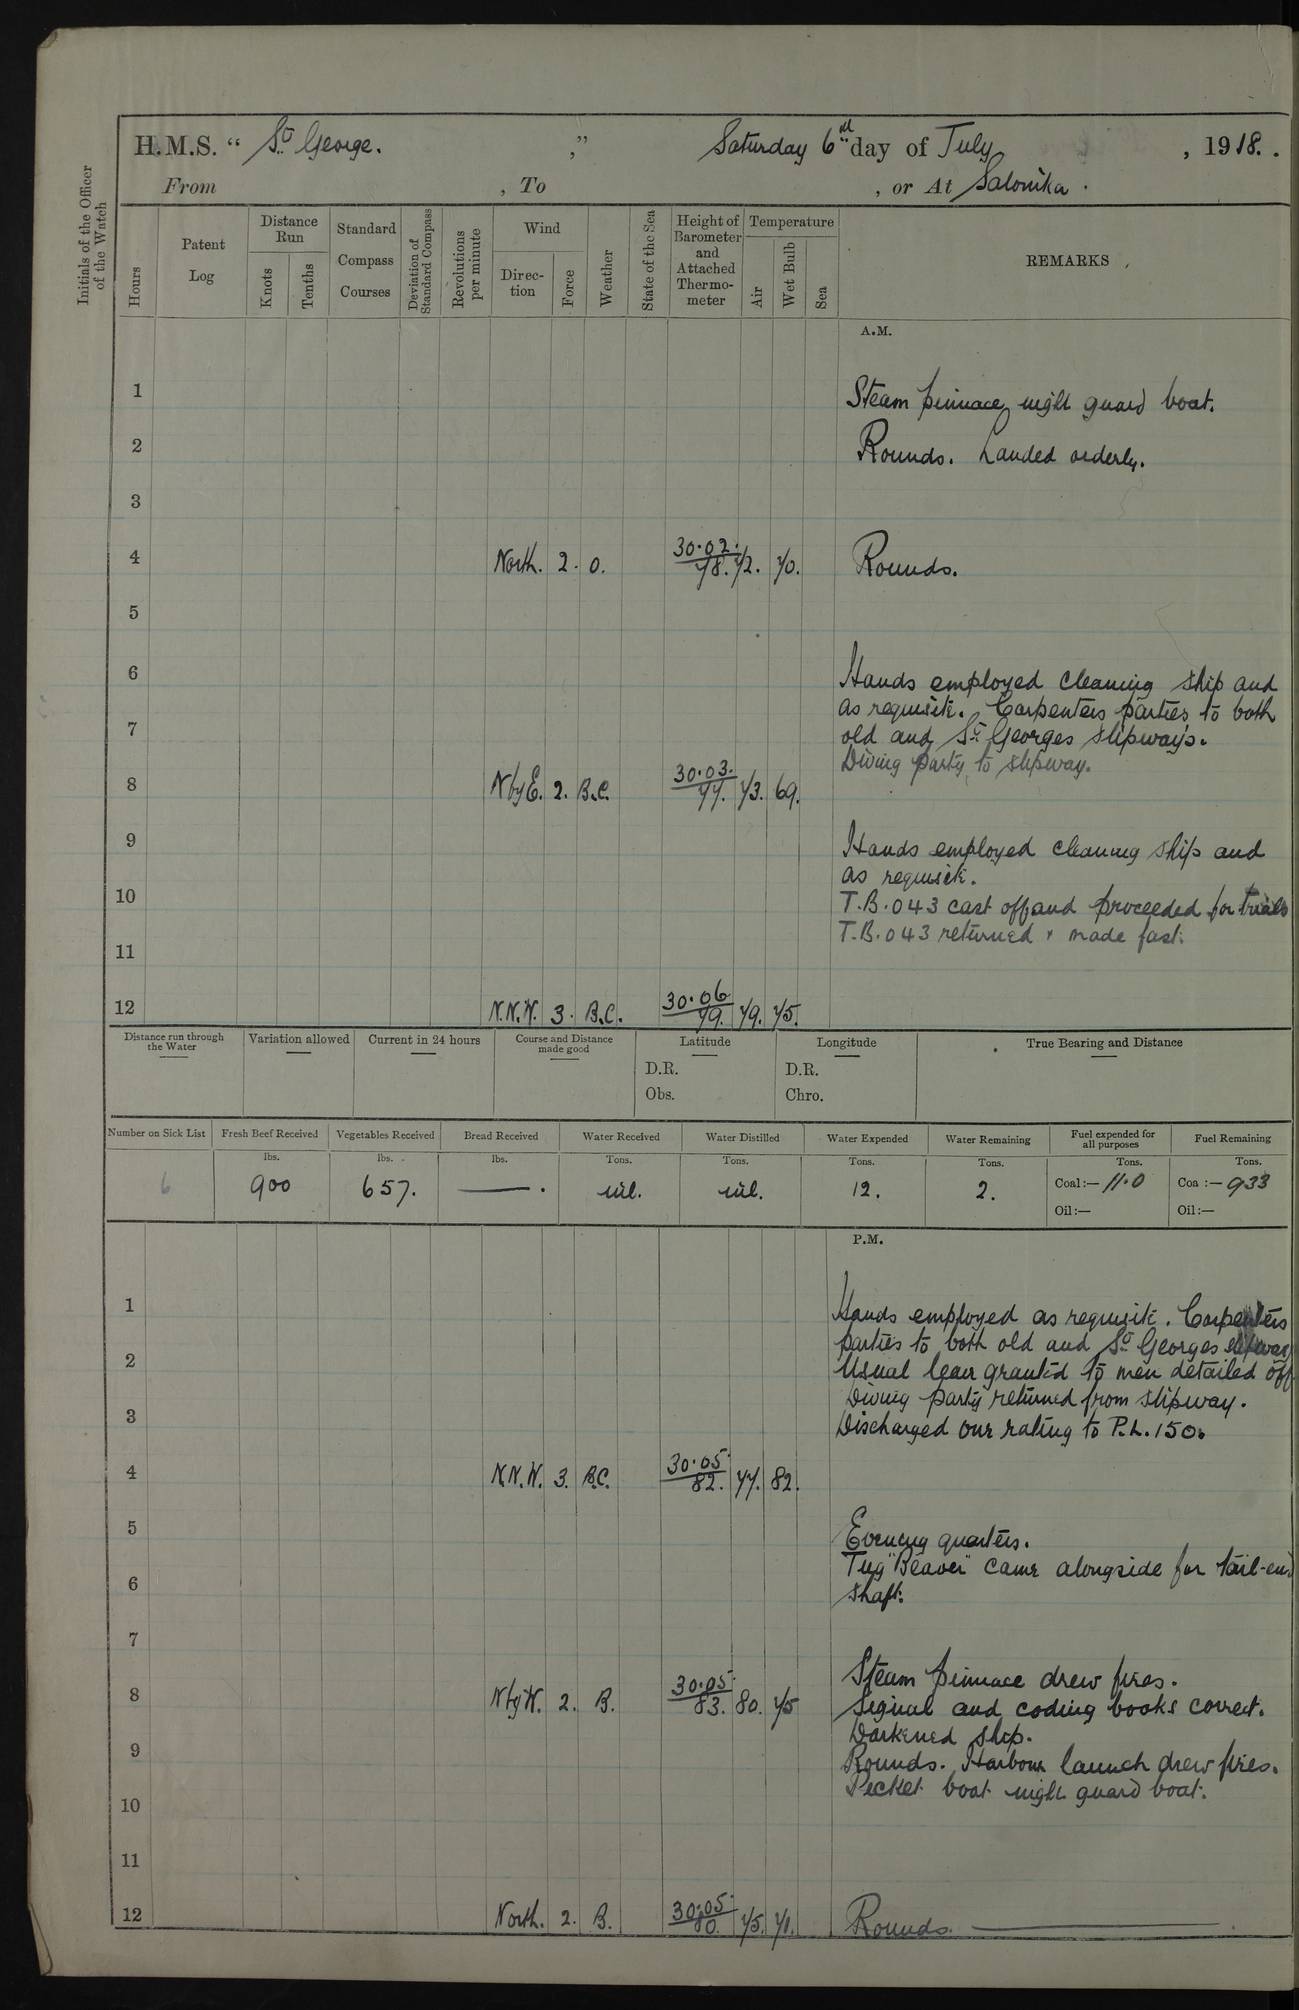 H.M.S. “ St George. ,” Saturday 6th day of July , 1918. .
From , To , or At Salonika .
Initials of the Officer of the Watch
Hours
Patent Log
Distance Run
Knots
Tenths
Standard Compass Courses
Deviation of Standard Compass
Revolutions per minute
Wind
Direc-tion
Force
Weather
State of the Sea
Height of Barometer and Attached Thermo-meter
Temperature
Air
Wet Bulb
Sea
REMARKS
A.M.
1 Steam pinnace night guard boat.
2 Rounds. Landed orderly.
3
4 North. 2. O. 30.02. 78. 72. 70. Rounds.
5
6 Hands employed cleaning ship and
as requisite. Carpenters parties to both
7 old and St Georges slipways.
Diving party to slipway.
8 N by E. 2. B.C. 30.03. 77. 73. 69.
9 Hands employed cleaning ship and
as requisite.
10 T.B. 043 cast off and proceeded for trials
T.B. 043 returned & made fast.
11
12 N.N.W. 3. B.C. 30.06 79. 79. 75.
Distance run through the Water
Variation allowed
Current in 24 hours
Course and Distance made good
Latitude
D.R.
Obs.
Longitude
D.R.
Chro.
True Bearing and Distance
Number on Sick List
Fresh Beef Received
Vegetables Received
Bread Received
Water Received
Water Distilled
Water Expended
Water Remaining
Fuel expended for all purposes
Fuel Remaining
lbs. lbs. lbs. Tons. Tons. Tons. Tons. Tons. Tons.
6 900 657. — . nil. nil. 12. 2. Coal:— 11.0 Coa :— 933
Oil:— Oil:—
P.M.
1 Hands employed as requisite. Carpenters
parties to both old and St Georges slipway
2 Usual leave granted to men detailed off
Diving party returned from slipway.
3 Discharged one rating to P.L. 150.
4 N.N.W. 3. B.C. 30.05 82. 77. 82.
5 Evening quarters.
Tug "Beaver" came alongside for tail-end
6 shaft.
7 Steam pinnace drew fires.
8 N by W. 2. B. 30.05 83. 80. 75 Signal and coding books correct.
Darkened ship.
9 Rounds. Harbour launch drew fires.
Picket boat night guard boat.
10
11
12 North. 2. B. 30.05 80. 75. 71. Rounds.